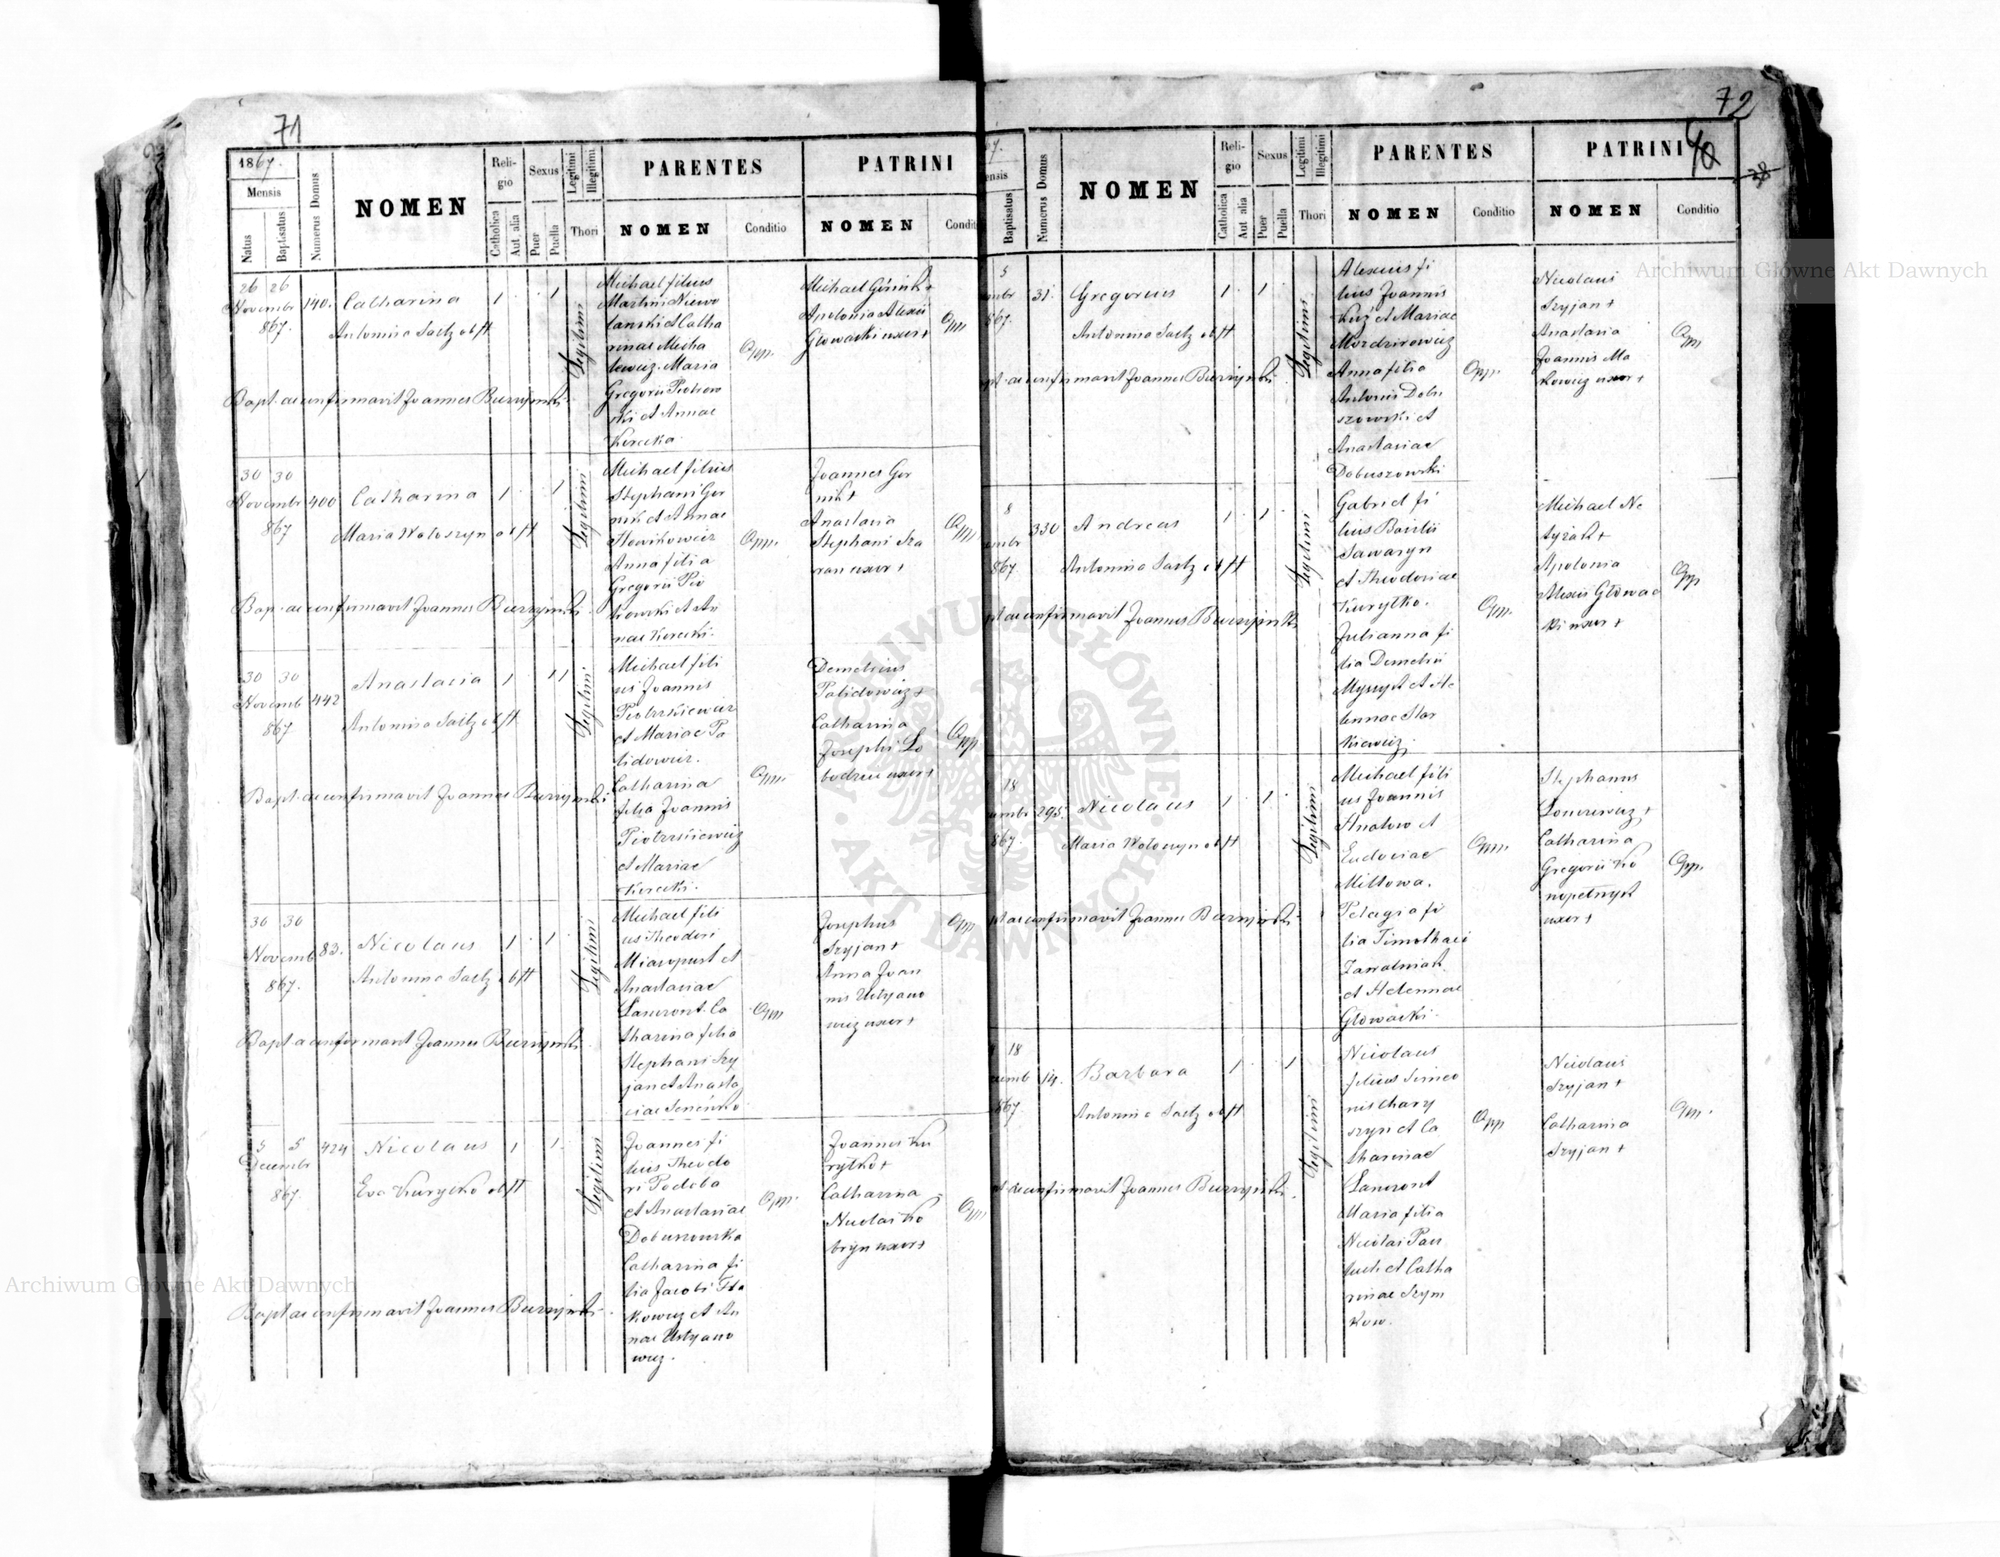 71
1867.
Mensis
Natus
Baptisatus
Numerus Domus
NOMEN
Reli-
gio
Catholica
Aut. alia
Sexus
Puer
Puella
Legitimi
Illegitimi
Thori
PARENTES
NOMEN
Conditio
PATRINI
NOMEN
Condit
26 26
Novembr
867.
140.
Catharina
Antonina Saelz obst
1
1
Legitimi
Michael filius
Martini Niewo
lanski et Catha
rinae Micha
lewicz. Maria
Gregorii Piotrow
ski et Annae
Korecka
Opp.
Michael Górnik +
Apolonia Alexii
Głowacki uxor +
Opp
Bapt. ac confirmavit Joannes Burzynski
30 30
Novembr
867
400
Catharina
Maria Wołoszyn obst
1
1
Legitimi
Michael filius
Stephani Gor
nik et Annae
Słowikowicz
Anna filia
Gregorii Pio
trowski et An
nae Korecki.
Opp.
Joannes Gor
nik +
Anastasia
Stephani Sza
ran uxor +
Opp
Bap. ac confirmavit Joannes Burzynski
30 30
Novemb
867
442
Anastasia
Antonina Saelz obst
1
1
Legitimi
Michael fili
us Joannis
Piotrkiewicz
et Mariae Pa
lidowicz.
Catharina
filia Joannis
Piotrkiewicz
et Mariae
Korecki.
Opp.
Demetrius
Palidowicz +
Catharina
Josephi Lo
bodziec uxor +
Opp
Bapt. ac confirmavit Joannes Burzynski
30 30
Novemb
867.
83.
Nicolaus
Antonina Saelz obst
1
1
Legitimi
Michael fili
us Theodori
Miasopust et
Anastasiae
Lancront. Ca
tharina filia
Stephani Szy
jan et Anasta
siae Senenko
Opp
Josephus
Szyjan +
Anna Joan
nis Ustyano
wicz uxor +
Opp
Bapt ac confirmavit Joannes Burzynski
5 5
Decembr
867.
424
Nicolaus
Eva Kurytko obst
1
1
Legitimi
Joannes fi
lius Theodo
ri Podoba
et Anastasiae
Dobuszowska
Catharina fi
lia Jacobi Hla
kowicz et An
nae Ustyano
wicz.
Opp.
Joannes Ku
rytko +
Catharina
Nicolai Ko
bryn uxor +
Opp
Bapt ac confirmavit Joannes Burzynski
72
67.
ensis
Baptisatus
Numerus Domus
NOMEN
Reli-
gio
Catholica
Aut alia
Sexus
Puer
Puella
Legitimi
Illegitimi
Thori
PARENTES
NOMEN
Conditio
PATRINI
NOMEN
Conditio
5
embr
867.
31.
Gregorius
Antonina Saelz obst
1
1
Legitimi
Alexius fi
lius Joannis
Kuz et Mariae
Mozdzirowicz
Anna filia
Antonii Dobu
szowski et
Anastasiae
Dobuszowski
Opp.
Nicolaus
Szyjan +
Anastasia
Joannis Ma
kowicz uxor +
Opp
pt. ac confirmavit Joannes Burzynski
8
embr
867.
330
Andreas
Antonina Saelz obst
1
1
Legitimi
Gabriel fi
lius Basilii
Sawaryn
et Theodosiae
Kurytko.
Julianna fi
lia Demetrii
Mysyst et He
lennae Star
kiewicz.
Opp.
Michael Ne
Apolonia
Alexii Głowac
ki uxor +
Opp
pt ac confirmavit Joannes Burzynski
18
embr
867.
295.
Nicolaus
Maria Wołoszyn obst
1
1
Legitimi
Michael fili
us Joannis
Hnatow et
Eudociae
Mittowa.
Pelagia fi
lia Timothaei
Zawalniak
et Helennae
Głowacki.
Opp.
Stephanus
Catharina
Gregorii Ko
nopelnyk
uxor +
Opp.
pt ac confirmavit Joannes Burzynski
18
cemb
867.
14.
Barbara
Antonina Saelz obst
1
1
Legitimi
Nicolaus
filius Simeo
nis Chary
szyn et Ca
tharinae
Lancront
Maria filia
Nicolai Paw
luch et Catha
rinae Szym
kow.
Opp
Nicolaus
Szyjan +
Catharina
Szyjan +
Opp.
pt ac confirmavit Joannes Burzynski
Archiwum Główne Akt Dawnych
Archiwum Główne Akt Dawnych
ARCHIWUM GŁÓWNE
AKT DAWNYCH